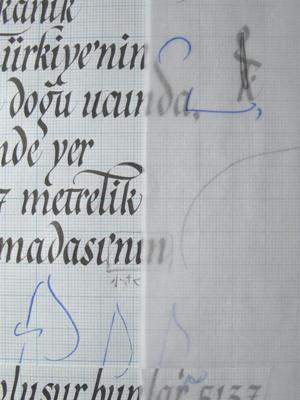 kanik
ürkiye'nin
doğu ucunda,
nde yer
7 metrelik
madası'nın
小さく
bunlar 5137